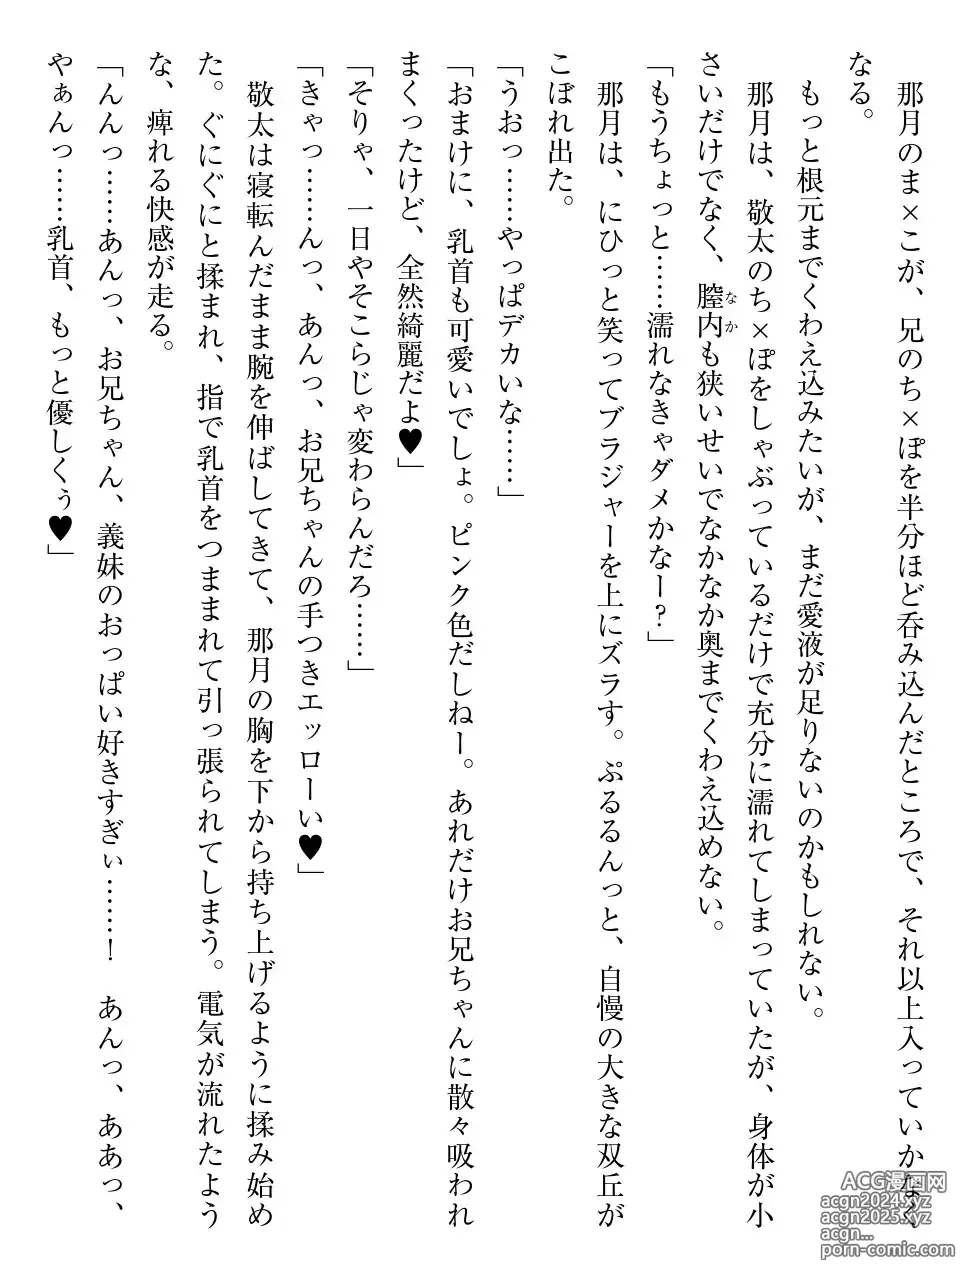 那月のま×こが、兄のち×ぽを半分ほど呑み込んだところで、それ以上入っていかなく
なる。
もっと根元までくわえ込みたいが、まだ愛液が足りないのかもしれない。
那月は、敬太のち×ぽをしゃぶっているだけで充分に濡れてしまっていたが、身体が小
さいだけでなく、膣内なかも狭いせいでなかなか奥までくわえ込めない。
「もうちょっと……濡れなきゃダメかなー？」
那月は、にひっと笑ってブラジャーを上にズラす。ぷるるんっと、自慢の大きな双丘が
こぼれ出た。
「うおっ……やっぱデカいな……」
「おまけに、乳首も可愛いでしょ。ピンク色だしねー。あれだけお兄ちゃんに散々吸われ
まくったけど、全然綺麗だよ♥」
「そりゃ、一日やそこらじゃ変わらんだろ……」
「きゃっ……んっ、あんっ、お兄ちゃんの手つきエッローい♥」
敬太は寝転んだまま腕を伸ばしてきて、那月の胸を下から持ち上げるように揉み始め
た。ぐにぐにと揉まれ、指で乳首をつままれて引っ張られてしまう。電気が流れたよう
な、痺れる快感が走る。
「んんっ……あんっ、お兄ちゃん、義妹のおっぱい好きすぎぃ……！　あんっ、ああっ、
やぁんっ……乳首、もっと優しくぅ♥」
ACG漫画网
acgn2024.xyz
acgn2025.xyz
acgn...
porn-comic.com